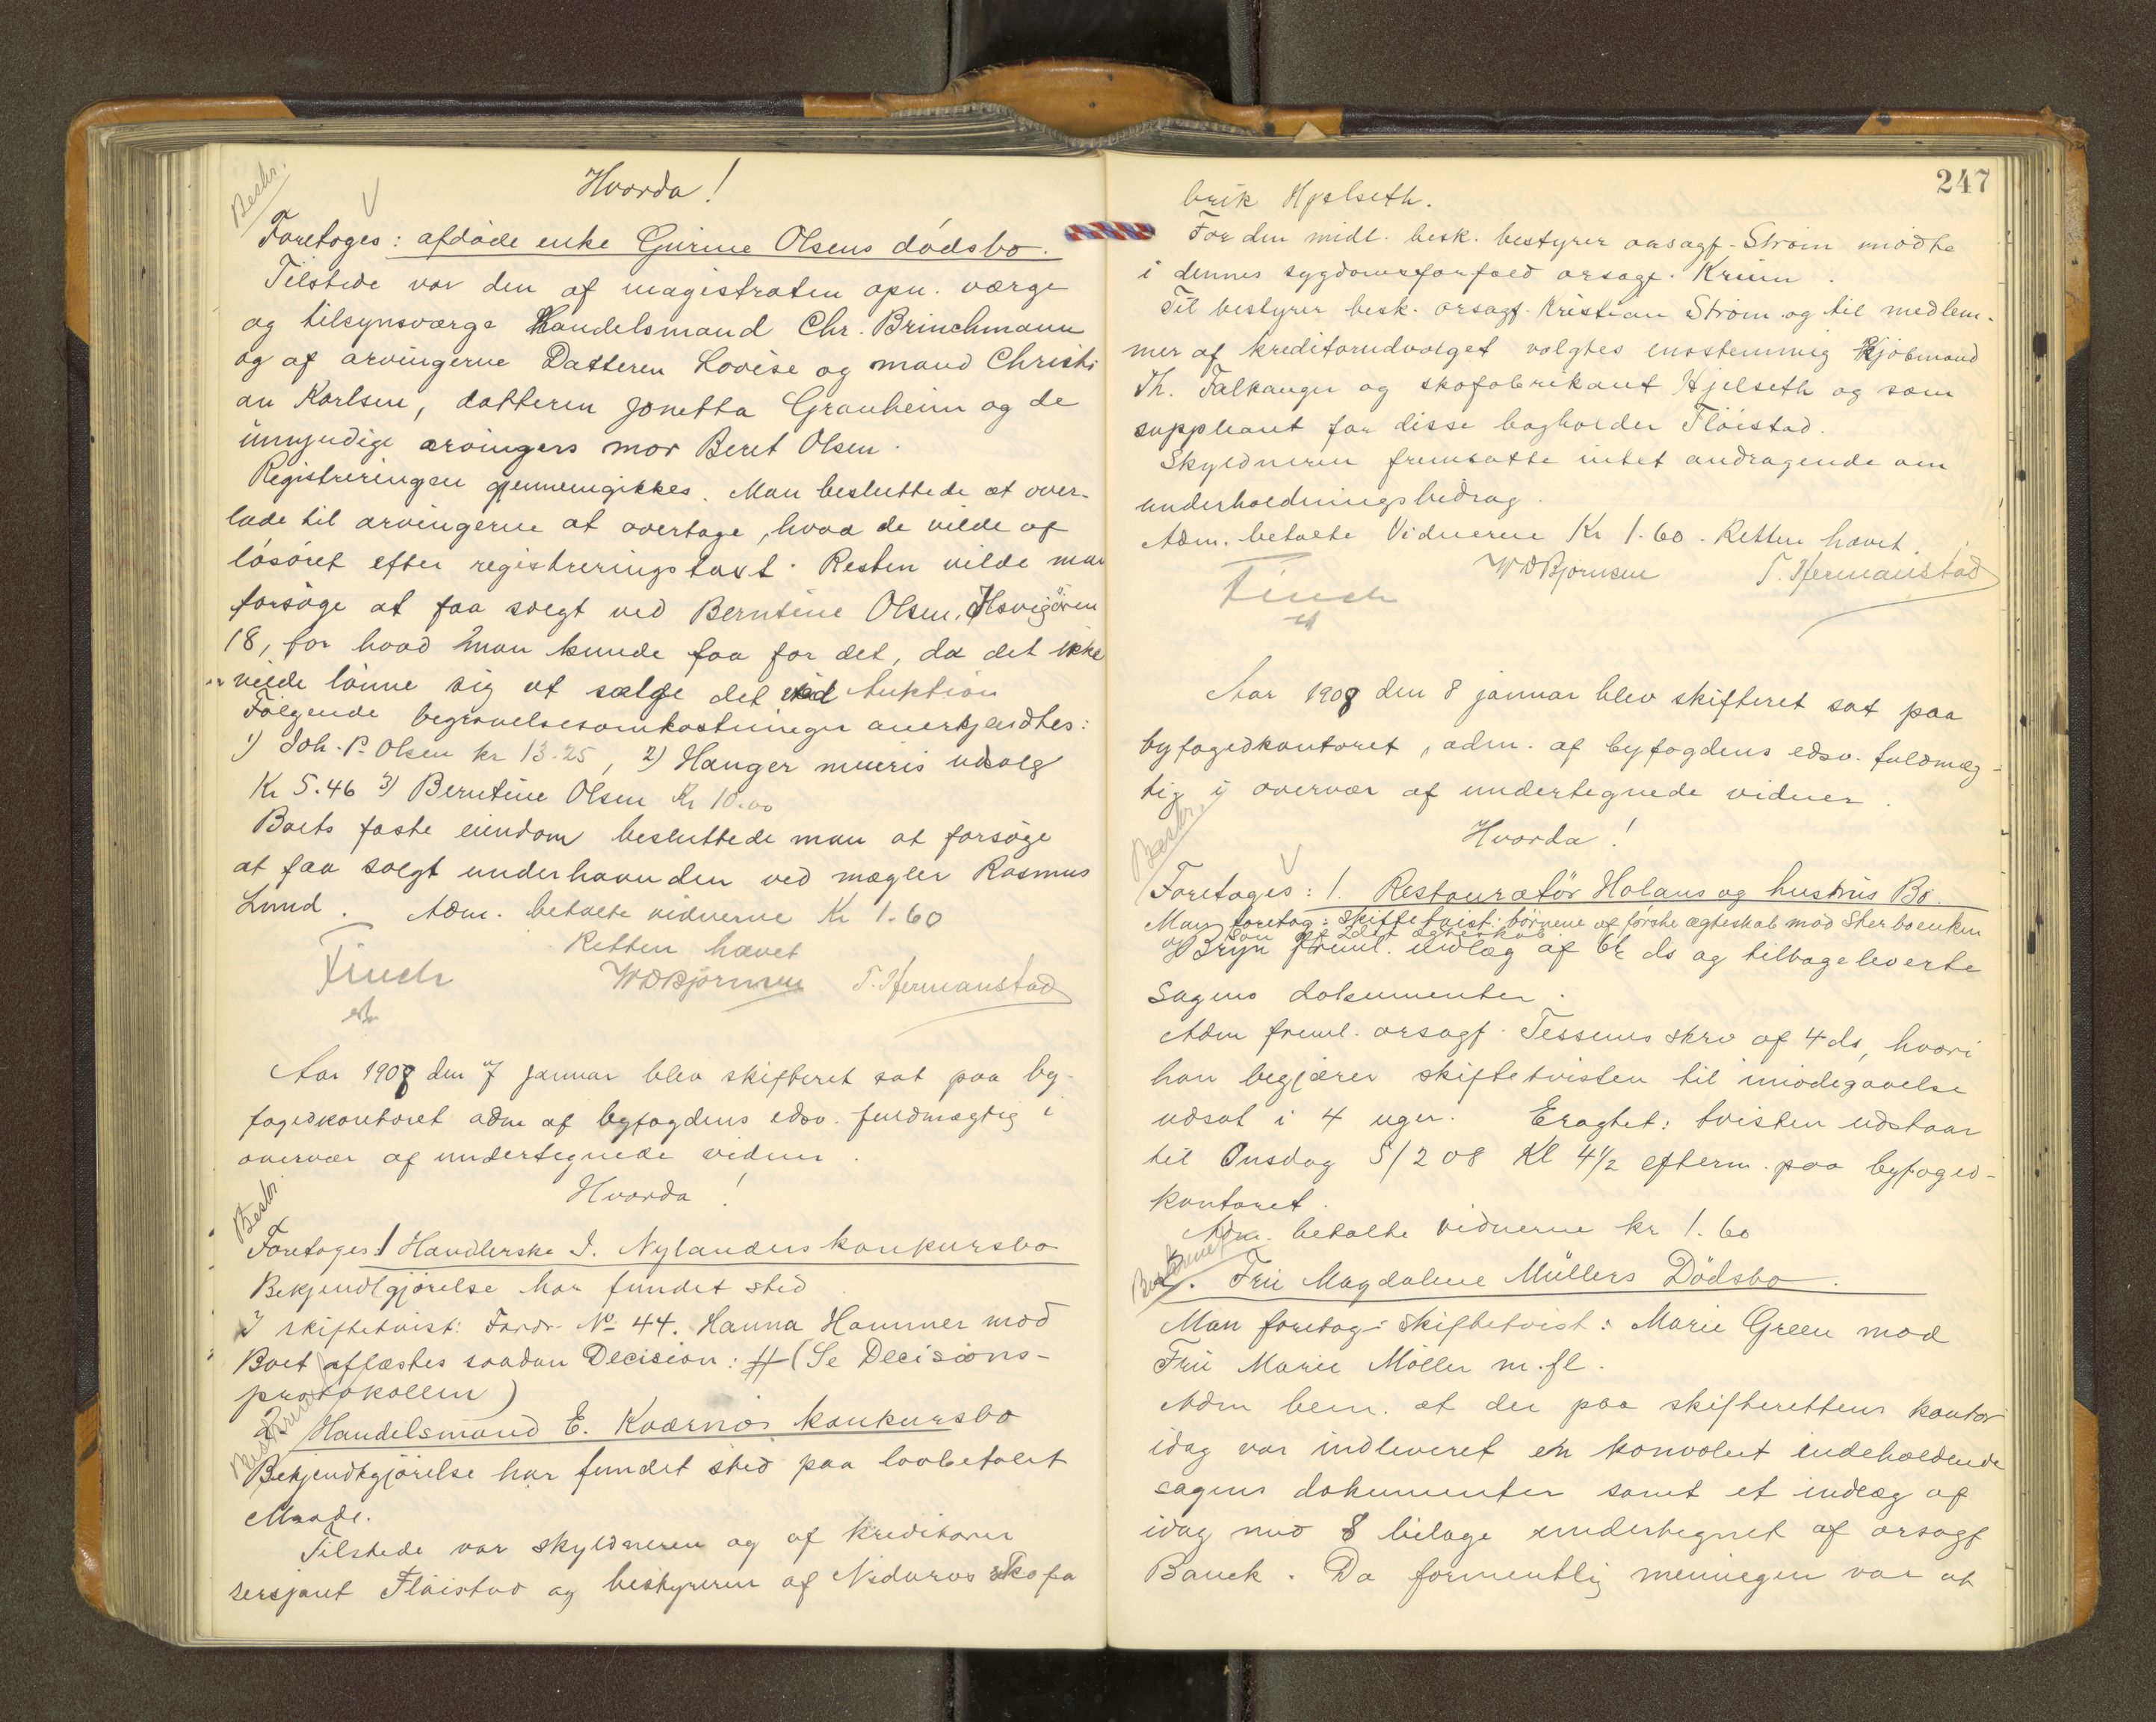 Beskr.
Hvorda!
Foretoges: afdøde enke Gurine Olsens dødsbo.
Tilstede var den af magistraten opn. værge
og tilsynsværge Handelsmand Chr. Brinchmann
og af arvingerne Datteren Lovise og mand Christi
an Karlsen, datteren Jonetta Granheim og de
umyndige arvingers mor Beret Olsen.
Registreringen gjennemgikkes. Man besluttede at over-
lade til arvingerne at overtage, hvad de vilde af
løsøret efter registreringstaxt. Resten vilde man
forsøge at faa solgt ved Berntine Olsen, Ilsvigøren
18, for hvad man kunde faa for det, da det ikke
vilde lønne sig at sælge det ved Auktion
Følgende begravelsesomkostninger anerkjendtes:
1) Joh. P. Olsen kr 13.25, 2) Hanger udlæg
Kr 5.46 3) Berntine Olsen Kr 10.00
Boets faste eiendom besluttede man at forsøge
at faa solgt underhaanden ved mægler Rasmus
Lund. Adm. betalte vidnerne Kr 1.60
Retten hævet
Finch WDBjørnsen T. Hermanstad
Aar 1908 den 7 januar blev skifteret sat paa by-
fogedkontoret adm af byfogdens edsv. fuldmægtig i
overvær af undertegnede vidner.
Hvorda!
Beskr.
Foretoges: 1 Handlerske J. Nylanders konkursbo
Bekjendtgjørelse har fundet sted
I skiftetvist: Fordr. No 44. Hanna Hammer mod
Boet aflæstes saadan Decision: # (Se Decisions-
protokollen)
Beskrevet
2. Handelsmand E. Kværnøs konkursbo
Bekjendtgjørelse har fundet sted paa lovbefalet
Maade.
Tilstede var skyldneren og af kreditorer
sersjant Fløistad og bestyreren af Nidaros skofa
247
brik Hjelseth.
For den midl. besk. bestyrer orsagf. Strøm mødte
i dennes sygdomsforfald orsagf. Krum.
Til bestyrer besk. orsagf. Kristian Strøm og til medlem-
mer af kreditorudvalget valgtes enstemmig kjøbmand
Th. Falkanger og skofabrikant Hjelseth og som
suppleant for disse bogholder Fløistad.
Skyldneren fremsatte intet andragende om
underholdningsbidrag.
Adm. betalte Vidnerne Kr 1.60. Retten hævet.
Finch WDBjørnsen T. Hermanstad
Aar 1908 den 8 januar blev skifteret sat paa
byfogedkontoret, adm. af byfogdens edsv. fuldmæg-
tig i overvær af undertegnede vidner.
Hvorda!
Beskr.
Foretoges: 1. Restauratør Holans og hustrus Bo.
Man foretog: Skiftetvist: børnene af første ægteskab mod Sterboenken
og søn af 2det ægteskab
Bryn freml. indlæg af 6te ds og tilbageleverte
sagens dokumenter.
Adm freml. orsagf. Tessems skrv af 4 ds, hvori
han begjærer skiftetvisten til imødegaaelse
udsat i 4 uger. Eragtet: tvisten udstaar
til Onsdag 5/2 08 Kl 4½ efterm. paa byfoged-
kontoret.
Adm. betalte vidnerne kr 1.60
Beskrevet
2. Fru Magdalene Müllers Dødsbo.
Man foretog: Skiftetvist: Marie Green mod
Fru Marie Møller m.fl.
Adm bem. at der paa skifterettens kontor
idag var indleveret en konvolut indeholdende
sagens dokumenter samt et indlæg af
idag med 8 bilage undertegnet af orsagf
Bauck. Da formentlig meningen var at